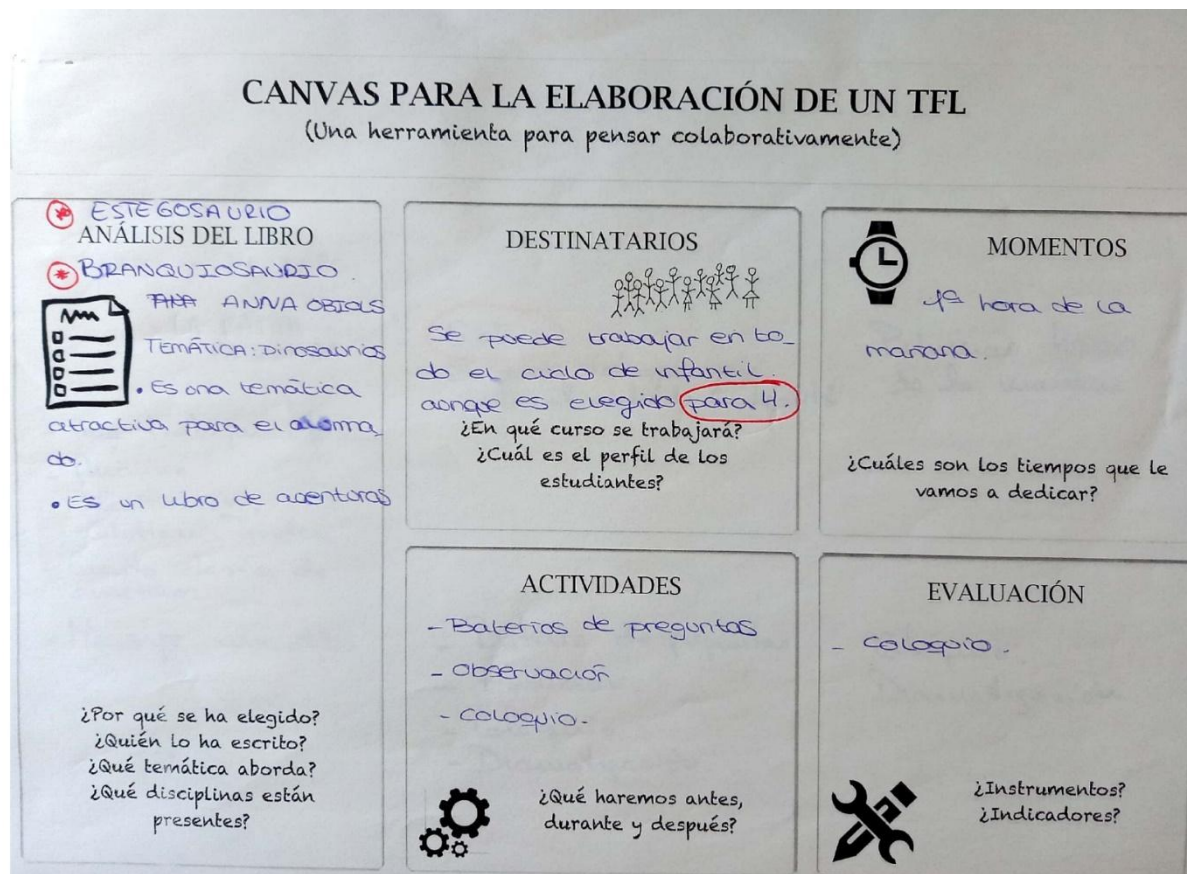 CANVAS PARA LA ELABORACIÓN DE UN TFL
(Una herramienta para pensar colaborativamente)
* ESTEGOSAURIO
ANÁLISIS DEL LIBRO
* BRANQUIOSAURIO.
ANNA OBIOLS
TEMÁTICA: Dinosaurios
• Es una temática
atractiva para el alumna
do.
• Es un libro de aventuras
¿Por qué se ha elegido?
¿Quién lo ha escrito?
¿Qué temática aborda?
¿Qué disciplinas están
presentes?
DESTINATARIOS
Se puede trabajar en to_
do el ciclo de infantil.
aunque es elegido para 4.
¿En qué curso se trabajará?
¿Cuál es el perfil de los
estudiantes?
MOMENTOS
1ª hora de la
mañana.
¿Cuáles son los tiempos que le
vamos a dedicar?
ACTIVIDADES
- Baterias de preguntas
- Observación
- Coloquio.
¿Qué haremos antes,
durante y después?
EVALUACIÓN
- Coloquio.
¿Instrumentos?
¿Indicadores?